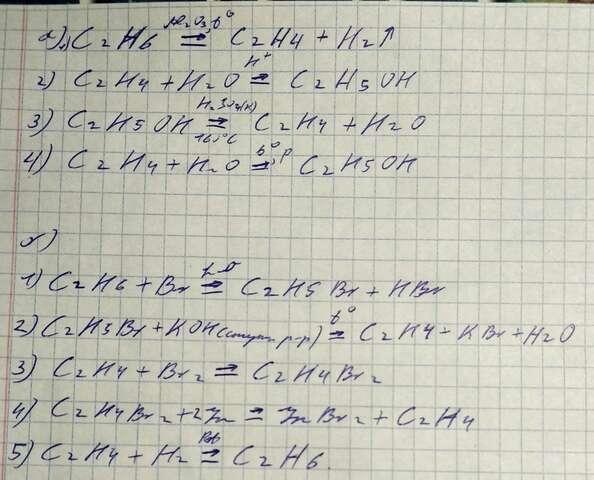 а)1) C2H6 ⇌ (Al2O3, t°) C2H4 + H2↑
2) C2H4 + H2O ⇌ (H+) C2H5OH
3) C2H5OH ⇌ (H2SO4(к), 160°C) C2H4 + H2O
4) C2H4 + H2O ⇌ (t°, p) C2H5OH
б)
1) C2H6 + Br ⇌ C2H5Br + HBr
2) C2H5Br + KOH(спирт. р-р) ⇌ (t°) C2H4 + KBr + H2O
3) C2H4 + Br2 ⇌ C2H4Br2
4) C2H4Br2 + Zn ⇌ ZnBr2 + C2H4
5) C2H4 + H2 ⇌ C2H6.